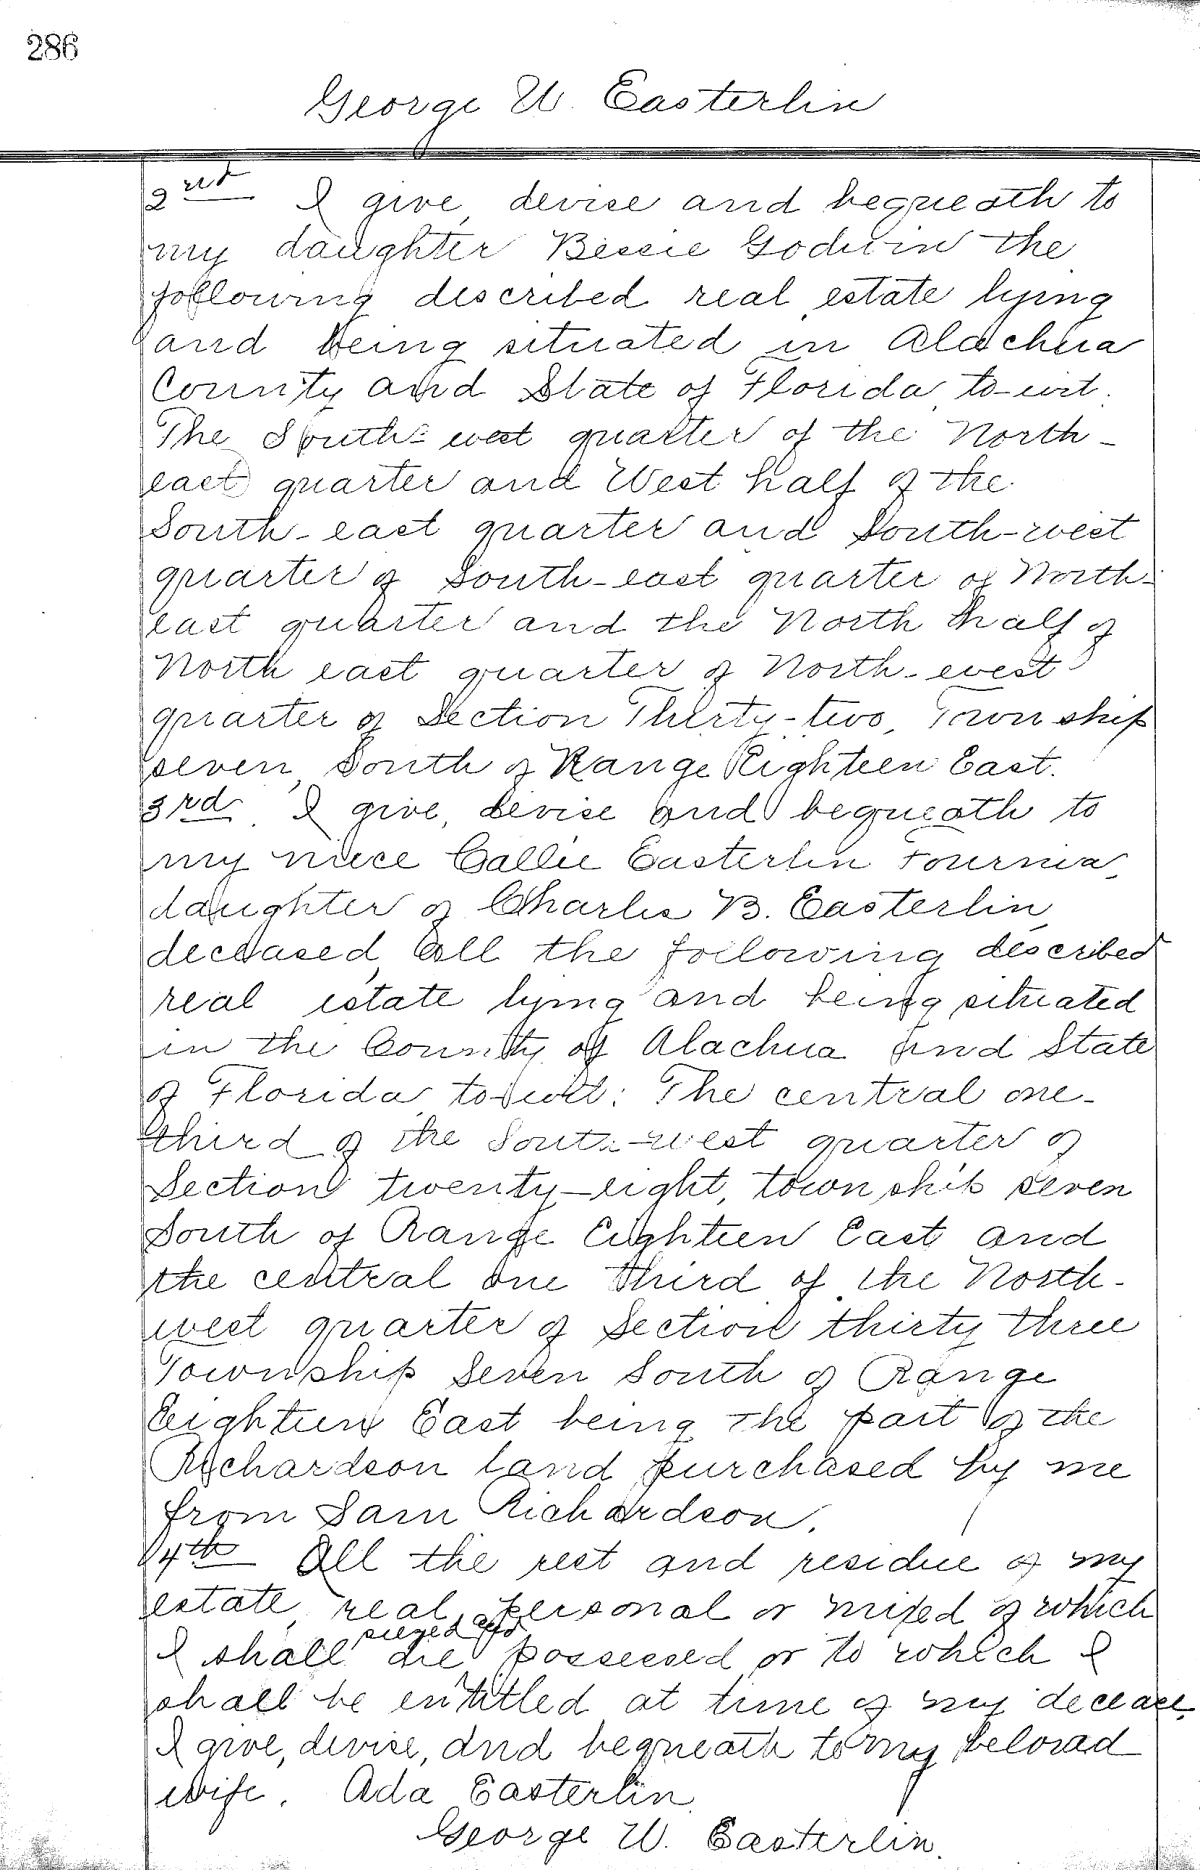 286
George W. Easterlin
2nd I give, devise and bequeath to
my daughter Bessie Godwin the
following described real estate lying
and being situated in Alachua
County and State of Florida, to-wit.
The South-west quarter of the North-
east quarter and West half of the
South-east quarter and South-west
quarter of South-east quarter of North-
east quarter and the North half of
North east quarter of North-west
quarter of Section Thirty-two, Township
seven, South of Range Eighteen East.
3rd. I give, devise and bequeath to
my niece Callie Easterlin Fournia,
daughter of Charlie B. Easterlin,
deceased, all the following described
real estate lying and being situated
in the County of Alachua and State
of Florida, to-wit: The central one-
third of the South-west quarter of
Section twenty-eight, township seven
South of Range Eighteen East and
the central one third of the North-
west quarter of Section thirty three
Township Seven South of Range
Eighteen East being the part of the
Richardson land purchased by me
from Sam Richardson.
4th All the rest and residue of my
estate, real, personal or mixed of which
siezed and
I shall die possessed, or to which I
shall be entitled at time of my decease,
I give, devise, and bequeath to my belovad
wife. Ada Easterlin.
George W. Easterlin.